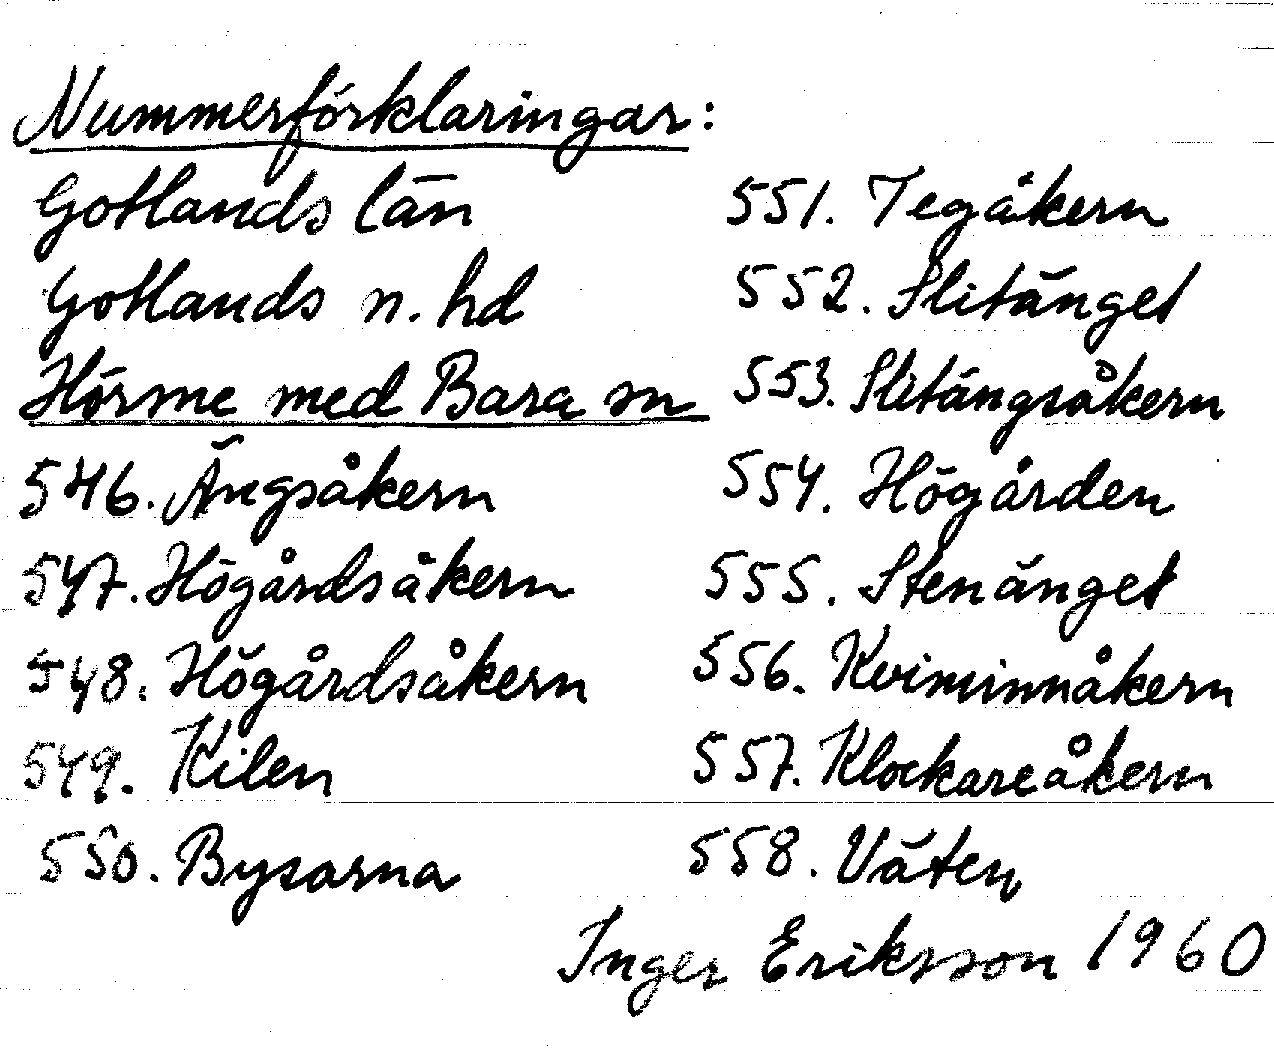 Nummerförklaringar:
Gotlands län
Gotlands n. hd
Hörsne med Bara sn
546. Ängsåkern
547. Högårdsåkern
548. Högårdsåkern
549. Kilen
550. Bysarna
551. Tegåkern
552. Slitänget
553. Slitängsåkern
554. Högården
555. Stenänget
556. Kviminnåkern
557. Klockareåkern
558. Väten
Inger Eriksson 1960